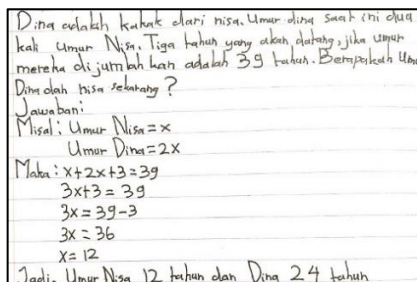 Dina adalah kakak dari nisa. Umur dina saat ini dua
kali umur Nisa. Tiga tahun yang akan datang, jika umur
mereka dijumlahkan adalah 39 tahun. Berapakah Umu
Dina dan nisa sekarang?
Jawaban:
Misal: Umur Nisa = x
Umur Dina = 2x
Maka: x + 2x + 3 = 39
3x + 3 = 39
3x = 39 - 3
3x = 36
x = 12
Jadi, Umur Nisa 12 tahun dan Dina 24 tahun